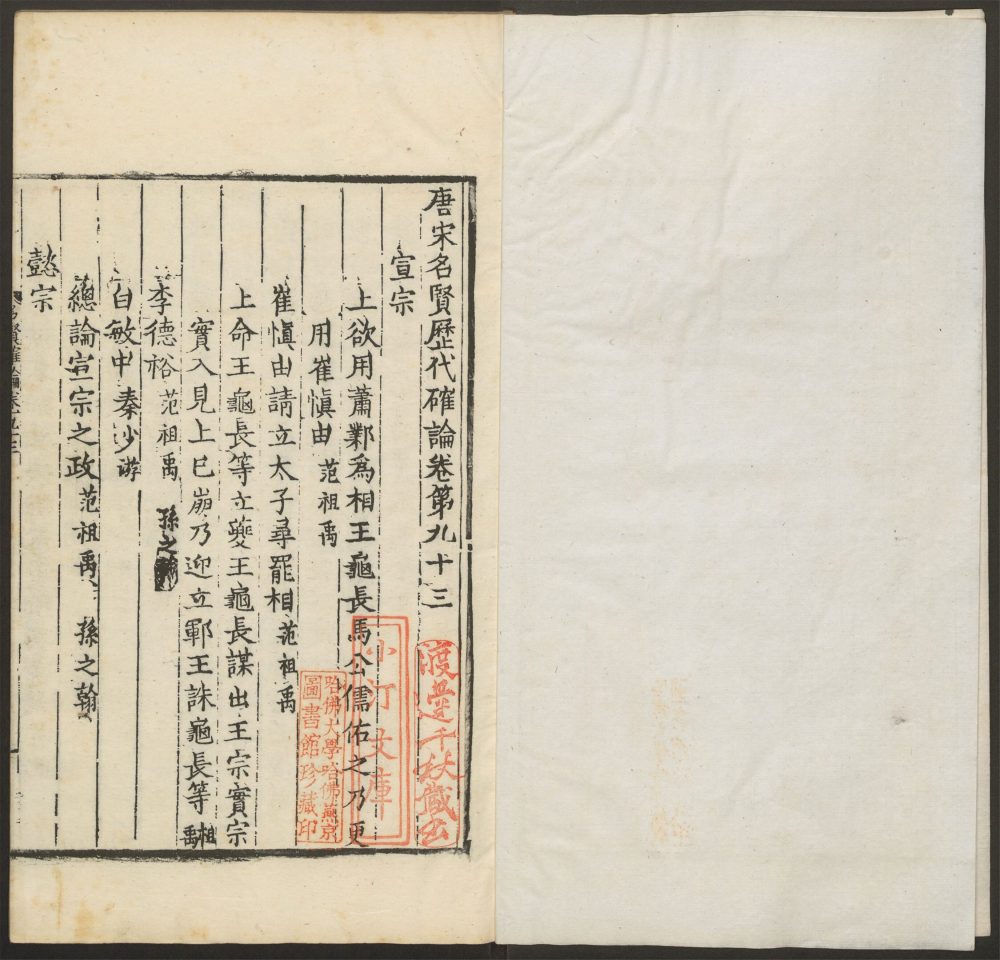 唐宋名賢歷代確論卷第九十三
宣宗
上欲用蕭鄴為相王龜長馬公儒佑之乃更
用崔慎由 范祖禹
崔慎由請立太子尋罷相 范祖禹
上命王龜長等立夔王龜長謀出王宗實宗
實入見上已崩乃迎立鄆王誅龜長等 祖禹
李德裕 范祖禹 孫之翰
白敏中 秦少游
總論宣宗之政 范祖禹 孫之翰
懿宗
渡邊千秋藏書
小汀文庫
哈佛大學哈佛燕京
圖書館珍藏印